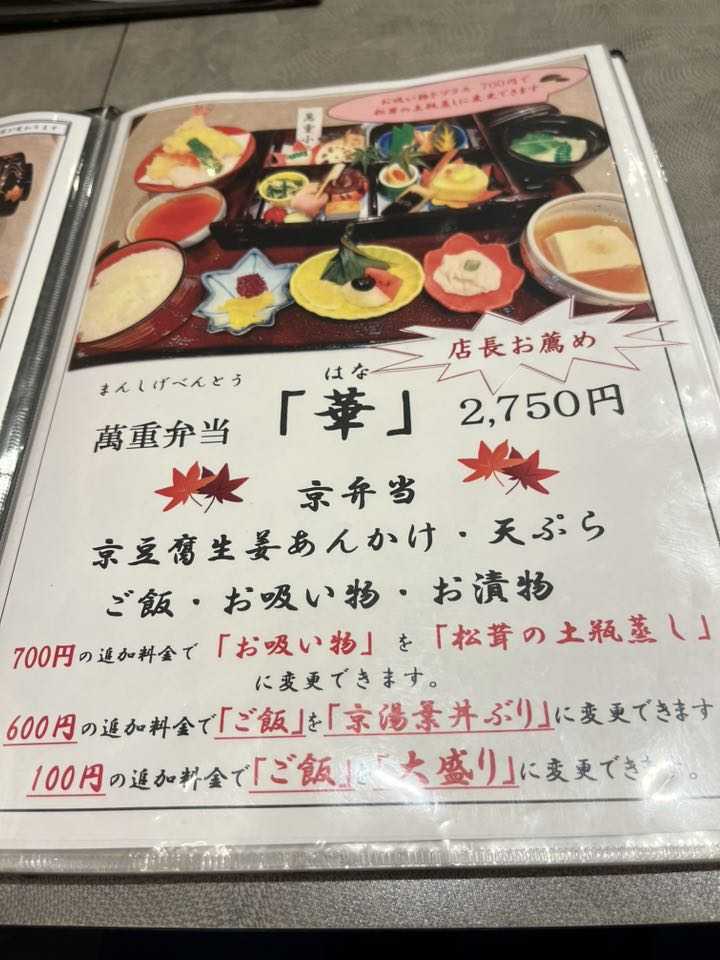 が変わります
お吸い物をプラス 700円で
松茸の土瓶蒸しに変更できます
萬重小
店長お薦め
まんしげべんとう
はな
萬重弁当 「華」 2,750円
京弁当
京豆腐生姜あんかけ・天ぷら
ご飯・お吸い物・お漬物
700円の追加料金で「お吸い物」を「松茸の土瓶蒸し」
に変更できます。
600円の追加料金で「ご飯」を「京湯葉丼ぶり」に変更できます
100円の追加料金で「ご飯」を「大盛り」に変更できます。